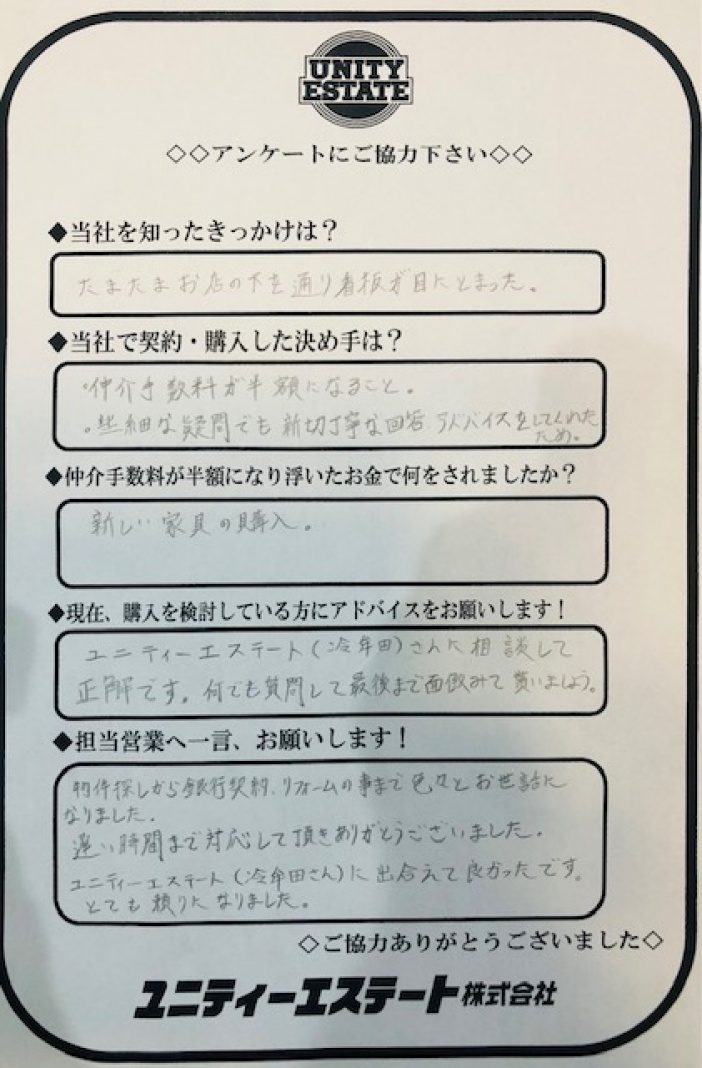 UNITY
ESTATE
◇◇アンケートにご協力下さい◇◇
◆当社を知ったきっかけは？
たまたまお店の下を通り看板が目にとまった。
◆当社で契約・購入した決め手は？
・仲介手数料が半額になること。
。些細な疑問でも新切丁寧な回答、アドバイスをしてくれた
ため。
◆仲介手数料が半額になり浮いたお金で何をされましたか？
新しい家具の購入。
◆現在、購入を検討している方にアドバイスをお願いします！
ユニティーエステート(冷牟田)さんに相談して
正解です。何でも質問して最後まで面倒みて貰いましょう。
◆担当営業へ一言、お願いします！
物件探しから銀行契約、リフォームの事まで色々とお世話に
なりました。
遅い時間まで対応して頂きありがとうございました。
ユニティーエステート(冷牟田さん)に出合えて良かったです。
とても頼りになりました。
◇ご協力ありがとうございました◇
ユニティーエステート株式会社